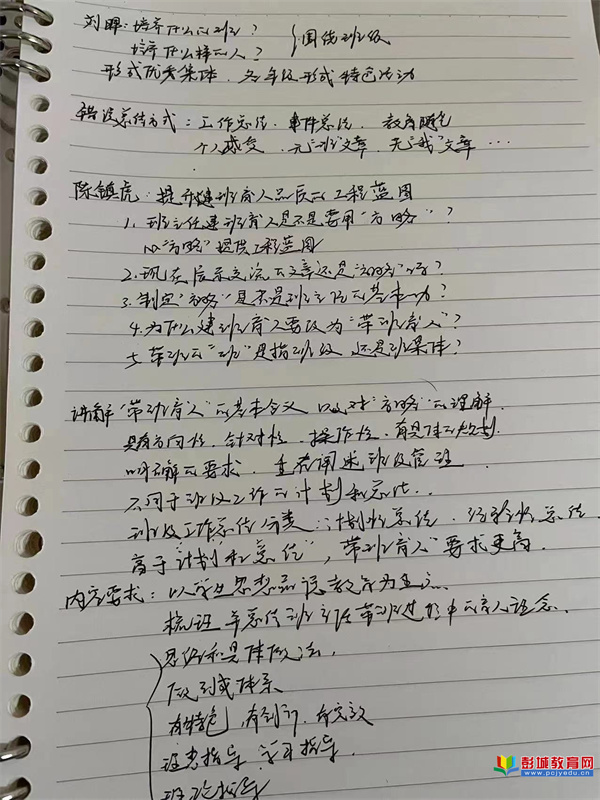 刘晖：培养什么的班？
培养什么样的人？｛围绕班级
形式优秀集体，各年级形式特色活动
错误总结方式：工作总结、事件总结、教育随笔
个人感受、无“班”文章、无“我”文章…
陈镇虎：提升建班育人品质的工程蓝图
1. 班主任建班育人是不是要用“方略”？
以“方略”提供工程蓝图
2. 现在展示交流的文章还是“方略”吗？
3. 制定“方略”是不是班主任的基本功？
4. 为什么建班育人要改为“带班育人”？
5. 带班的“班”是指班级还是班集体？
讲解“带班育人”的基本含义以及对“方略”的理解.
具有方向性、针对性、操作性、有具体的
明确的要求，重在阐述班级管理
不同于班级工作的计划和总结..
班级工作总结分类：计划性总结、经验性总结
高于“计划和总结”，“带班育人”要求更高.
内容要求：以学生思想品德教育为重点.
梳理并总结班主任在带班过程中的育人理念、
思路和具体做法.
做到成体系
有特色，有创新，有实效
班会指导 学习指导
彭城教育网
www.pcjyedu.cn